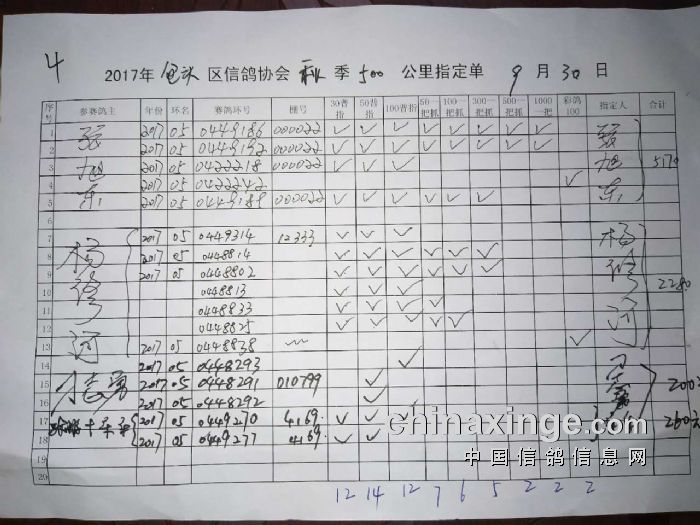 4
2017年 包头 区信鸽协会 秋 季 500 公里指定单 9 月 30 日
序号 参赛鸽主 年份 环名 赛鸽环号 棚号 30普指 50普指 100普指 50一把抓 100一把抓 300一把抓 500一把抓 1000一把 彩鸽100 指定人 合计
1 张 2017 05 0449186 000022 ✓ ✓ ✓ ✓ ✓ ✓ ✓ ✓ 张
2 2017 05 0449192 000022 ✓ ✓ ✓ ✓ ✓ ✓ ✓ ✓
3 旭 2017 05 0422218 000022 ✓ ✓ ✓ 旭
4 2017 05 0422242 ✓
5 东 2017 05 0449189 000022 ✓ ✓ ✓ ✓ ✓ ✓ 东
6
7 杨 2017 05 0449314 12333 ✓ ✓ ✓ 杨
8 2017 05 0448814 ✓ ✓ ✓ ✓ ✓ ✓
9 2017 05 0448802 ✓ ✓ ✓ ✓ ✓ ✓
10 0448813 ✓ ✓ ✓ 2280
11 0448833 ✓ ✓ ✓ ✓
12 0448825 ✓ ✓ ✓ ✓ ✓
13 河 2017 05 0448838 ✓ 河
14 2017 05 0448293 ✓
15 2017 05 0448291 010799 ✓
16 2017 05 0448292 ✓
17 2017 05 0449270 4169 ✓ ✓ ✓
18 2017 05 0449277 4169 ✓ ✓
19
20
12 14 12 7 6 5 2 2 2
chinaxinge.com
中国信鸽信息网